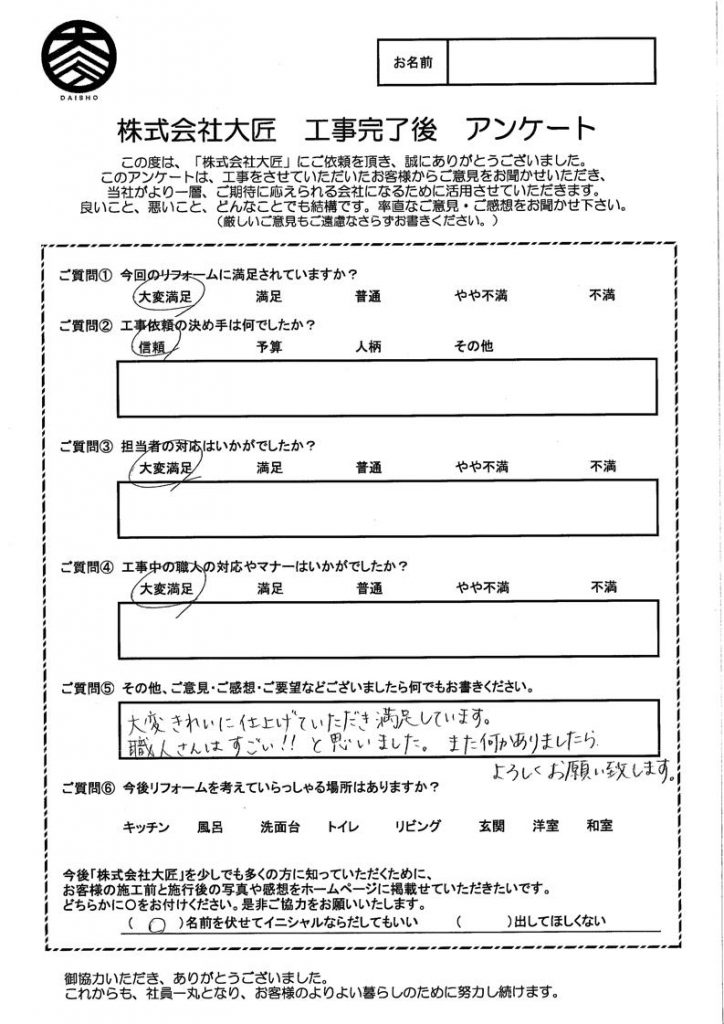 大匠
DAISHO
お名前
株式会社大匠 工事完了後 アンケート
この度は、「株式会社大匠」にご依頼を頂き、誠にありがとうございました。
このアンケートは、工事をさせていただいたお客様からご意見をお聞かせいただき、
当社がより一層、ご期待に応えられる会社になるために活用させていただきます。
良いこと、悪いこと、どんなことでも結構です。率直なご意見・ご感想をお聞かせ下さい。
(厳しいご意見もご遠慮なさらずお書きください。)
ご質問① 今回のリフォームに満足されていますか?
大変満足 満足 普通 やや不満 不満
ご質問② 工事依頼の決め手は何でしたか?
信頼 予算 人柄 その他
ご質問③ 担当者の対応はいかがでしたか?
大変満足 満足 普通 やや不満 不満
ご質問④ 工事中の職人の対応やマナーはいかがでしたか?
大変満足 満足 普通 やや不満 不満
ご質問⑤ その他、ご意見・ご感想・ご要望などございましたら何でもお書きください。
大変きれいに仕上げていただき満足しています。
職人さんはすごい!!と思いました。また何かありましたら
よろしくお願い致します。
ご質問⑥ 今後リフォームを考えていらっしゃる場所はありますか?
キッチン 風呂 洗面台 トイレ リビング 玄関 洋室 和室
今後「株式会社大匠」を少しでも多くの方に知っていただくために、
お客様の施工前と施行後の写真や感想をホームページに掲載せていただきたいです。
どちらかに○をお付けください。是非ご協力をお願いいたします。
(○)名前を伏せてイニシャルならだしてもいい ( )出してほしくない
御協力いただき、ありがとうございました。
これからも、社員一丸となり、お客様のよりよい暮らしのために努力し続けます。